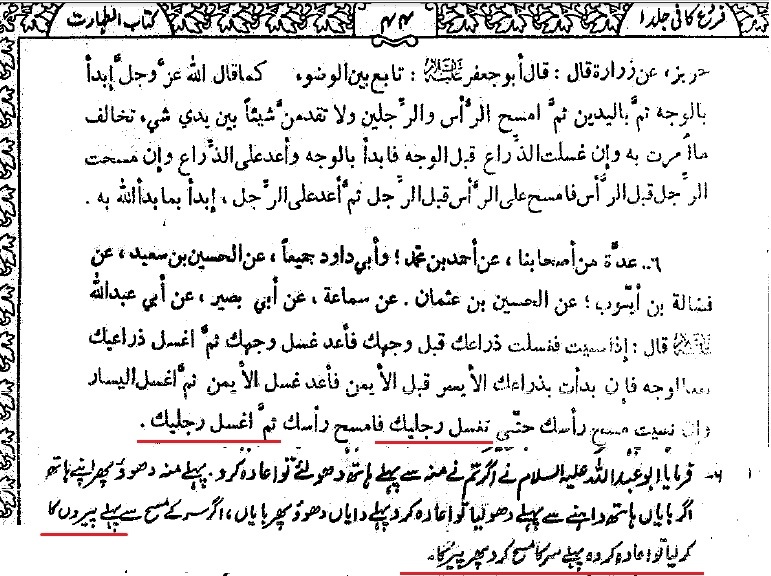 فروع کافی جلد ۱ ۴۴ کتاب الطہارت
حريز، عن زرارة قال : قال أبو جعفر عليه السلام : تابع بين الوضوء كما قال الله عزّ وجلّ إبدأ
بالوجه ثمّ باليدين ثمّ امسح الرأس والرّجلين ولا تقدمنّ شيئاً بين يدي شيء تخالف
ما أمرت به وإن غسلت الذّراع قبل الوجه فابدأ بالوجه وأعد على الذّراع وإن مسحت
الرّجل قبل الرّأس فامسح على الرّأس قبل الرّجل ثمّ أعد على الرّجل ، إبدأ بما بدأ الله به .
٦ـ عدّة من أصحابنا ، عن أحمد بن محمد ؛ وأبي داود جميعاً ، عن الحسين بن سعيد ، عن
فضالة بن أيّوب ؛ عن الحسين بن عثمان . عن سماعة ، عن أبي بصير ، عن أبي عبدالله
عليه السلام قال : إذا نسيت فغسلت ذراعك قبل وجهك فأعد غسل وجهك ثمّ اغسل ذراعيك
بعد الوجه فإن بدأت بذراعك الأيسر قبل الأيمن فأعد غسل الأيمن ثمّ اغسل اليسار
وإن نسيت مسح رأسك حتّى تغسل رجليك فامسح رأسك ثمّ اغسل رجليك .
۶۔ فرمایا ابو عبداللہ علیہ السلام نے اگر تم نے منہ سے پہلے ہاتھ دھولئے تو اعادہ کرو۔ پہلے منہ دھوؤ پھر اپنے ہاتھ
اگر بایاں ہاتھ داہنے سے پہلے دھو لیا تو اعادہ کرو پہلے دایاں دھوؤ پھر بایاں، اگر سر کے مسح سے پہلے پیروں کا
کر لیا تو اعادہ کرو پہلے سر کا مسح کرو پھر پیر کا۔